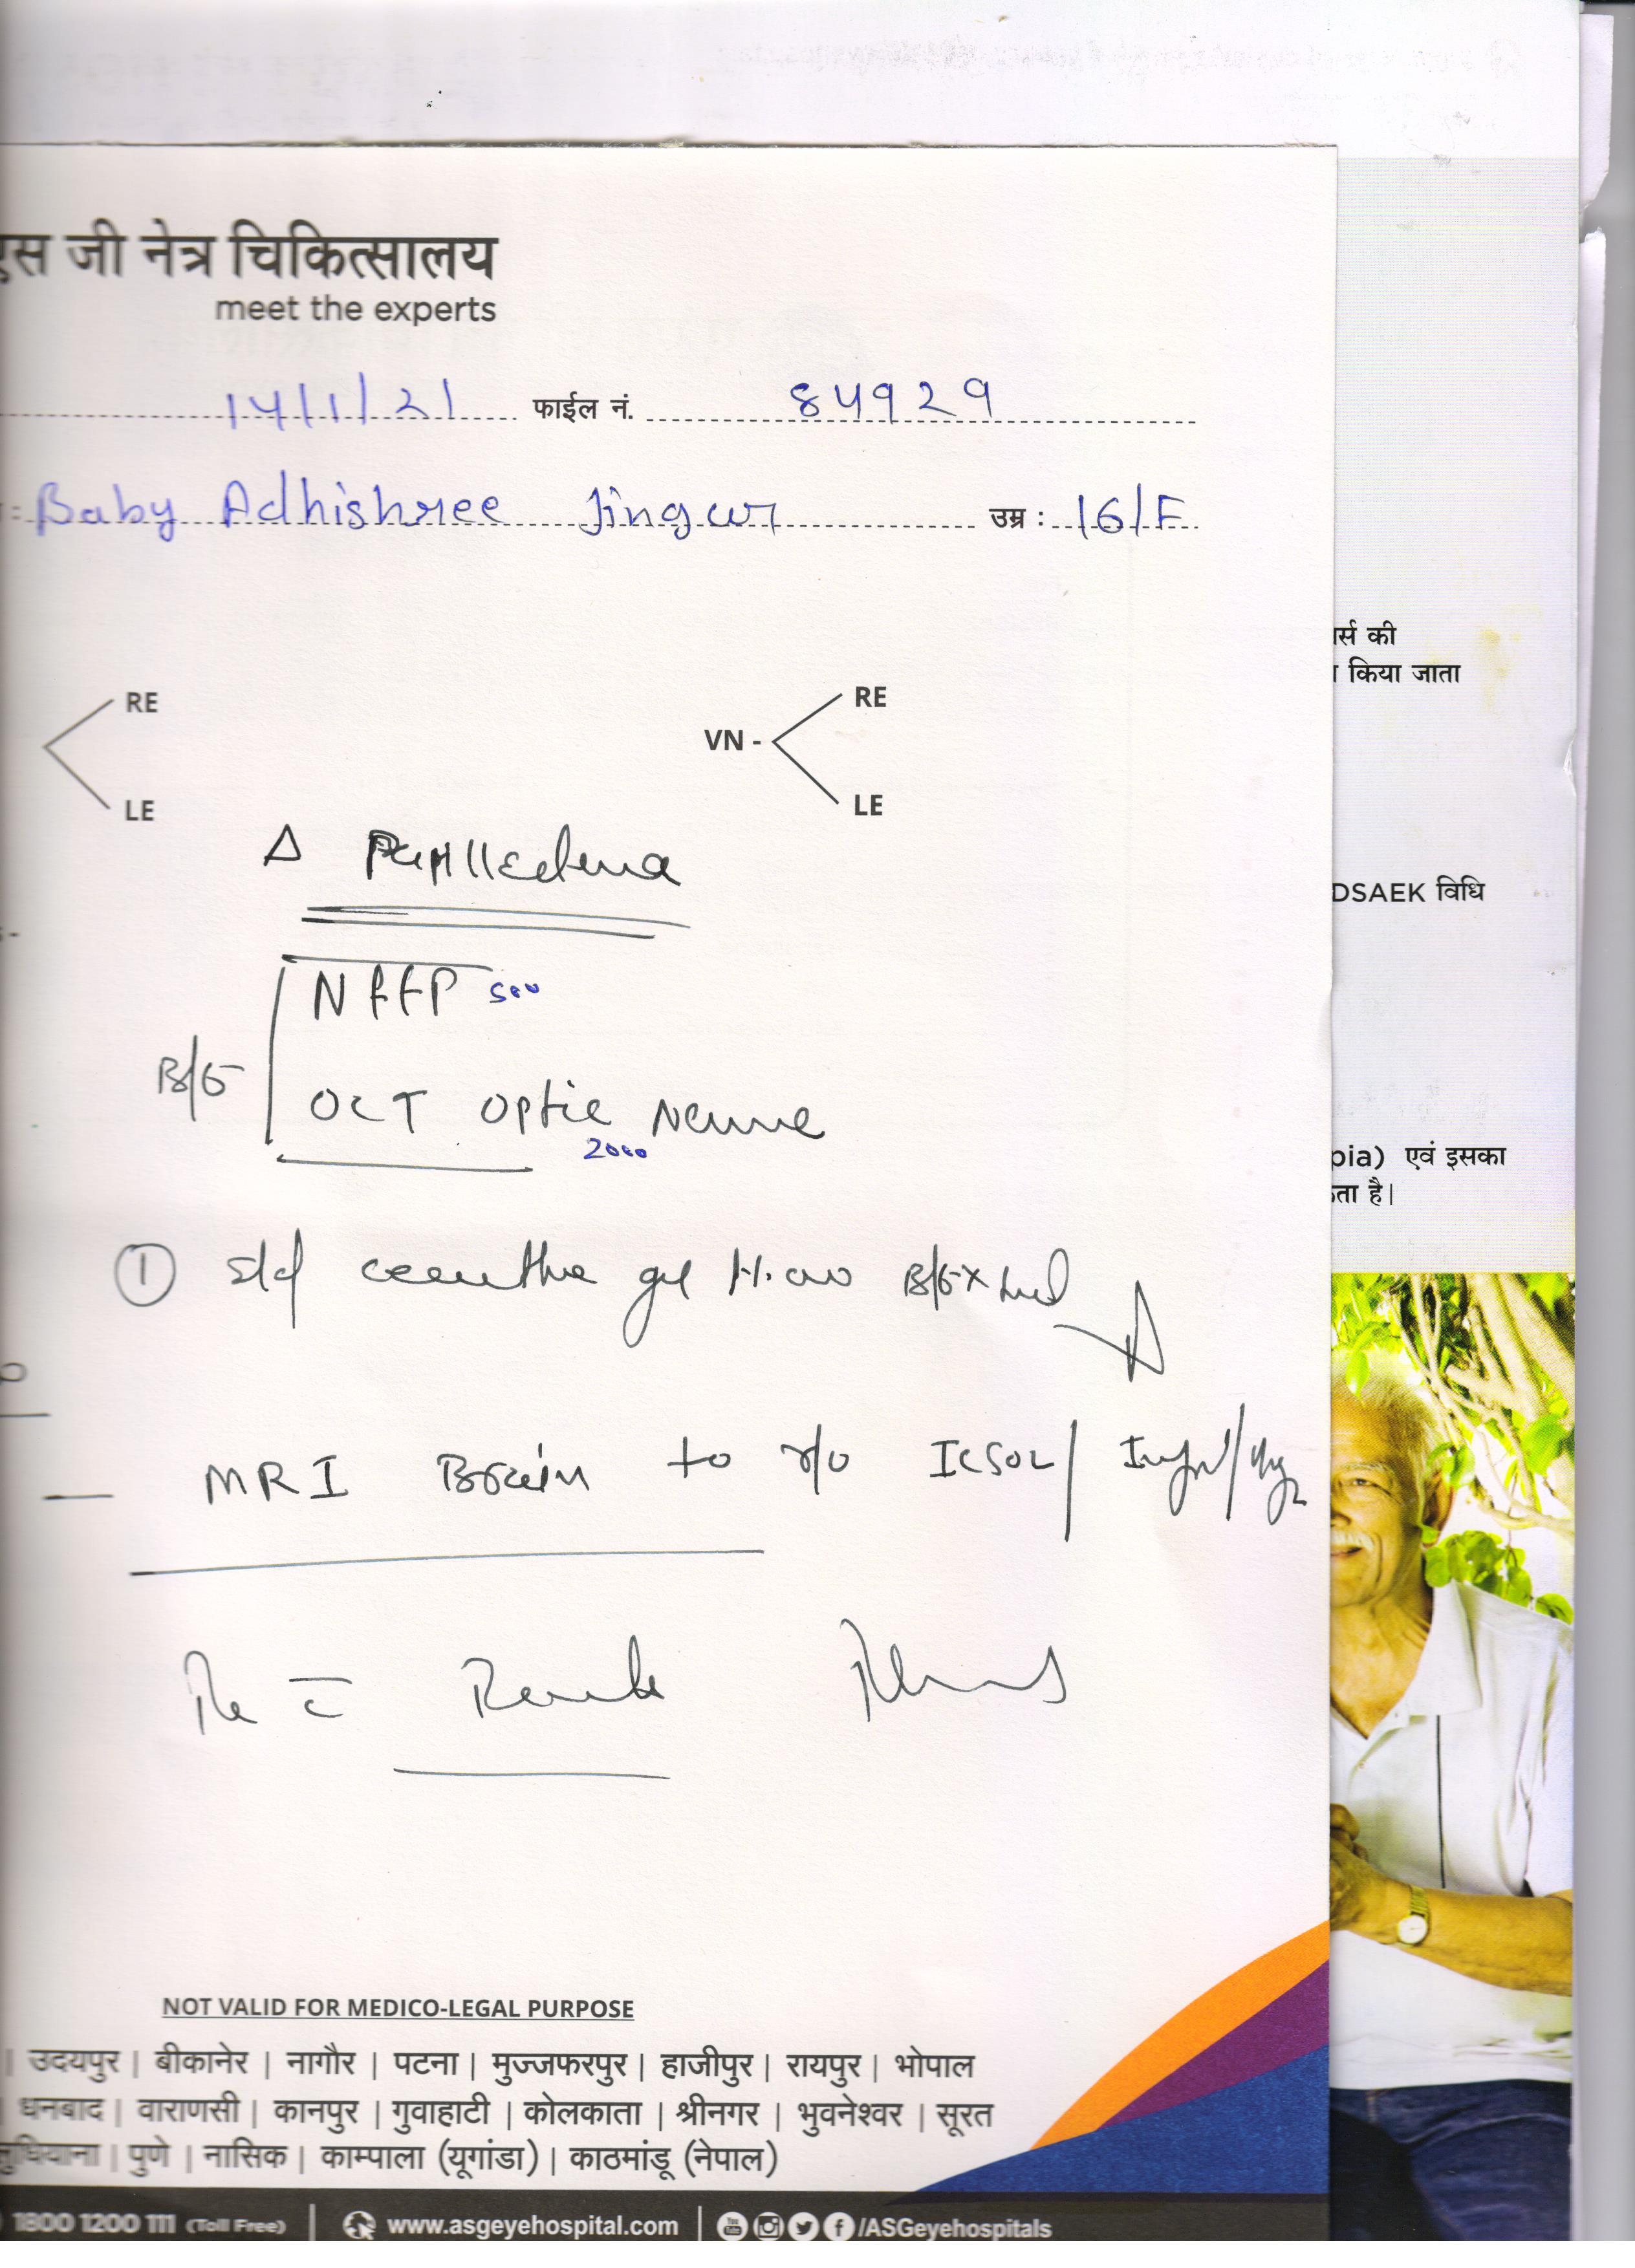 एस जी नेत्र चिकित्सालय
meet the experts
14/1/21 फाईल नं. 84929
: Baby Adhishree Jingar उम्र : 16/F
RE
LE
VN -
RE
LE
Δ Papilledema
NFFP 500
B/E
OCT Optic Nerve
2000
① H.
MRI Brain to r/o ICSOL/
NOT VALID FOR MEDICO-LEGAL PURPOSE
| उदयपुर | बीकानेर | नागौर | पटना | मुज्जफरपुर | हाजीपुर | रायपुर | भोपाल
धनबाद | वाराणसी | कानपुर | गुवाहाटी | कोलकाता | श्रीनगर | भुवनेश्वर | सूरत
लुधियाना | पुणे | नासिक | काम्पाला (यूगांडा) | काठमांडू (नेपाल)
1800 1200 111 (Toll Free) | www.asgeyehospital.com | /ASGeyehospitals
र्स की
किया जाता
DSAEK विधि
pia) एवं इसका
ता है।